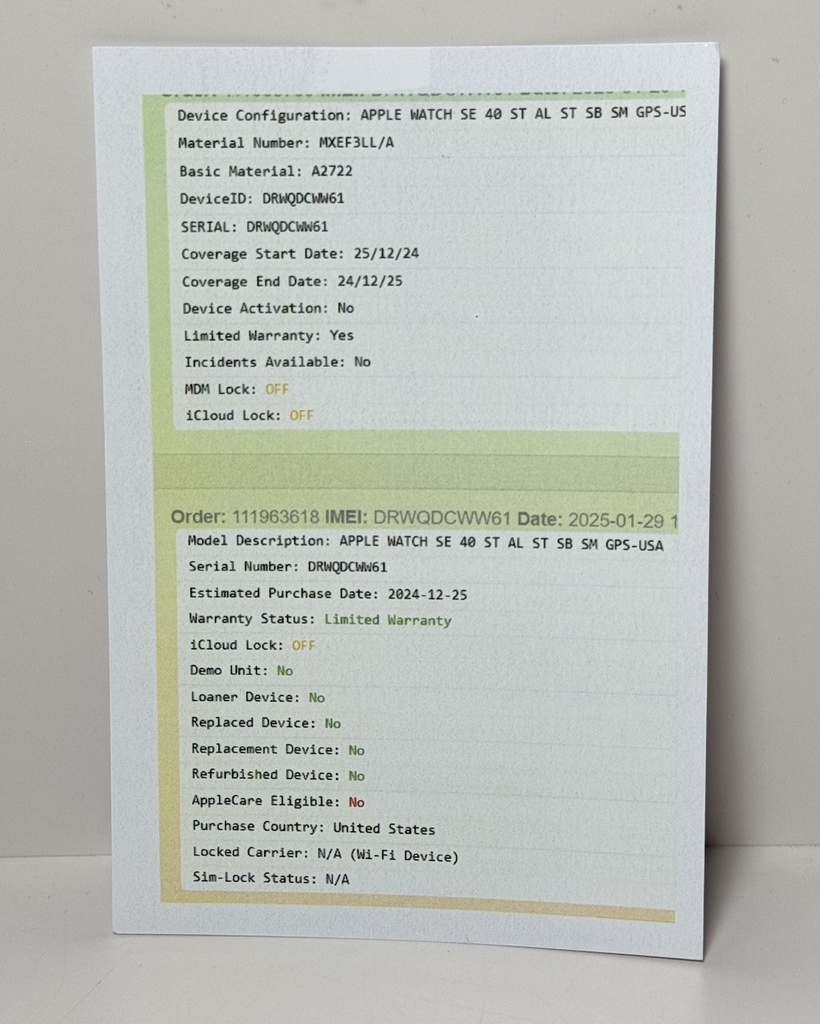 Device Configuration: APPLE WATCH SE 40 ST AL ST SB SM GPS-US
Material Number: MXEF3LL/A
Basic Material: A2722
DeviceID: DRWQDCWW61
SERIAL: DRWQDCWW61
Coverage Start Date: 25/12/24
Coverage End Date: 24/12/25
Device Activation: No
Limited Warranty: Yes
Incidents Available: No
MDM Lock: OFF
iCloud Lock: OFF
Order: 111963618 IMEI: DRWQDCWW61 Date: 2025-01-29 1
Model Description: APPLE WATCH SE 40 ST AL ST SB SM GPS-USA
Serial Number: DRWQDCWW61
Estimated Purchase Date: 2024-12-25
Warranty Status: Limited Warranty
iCloud Lock: OFF
Demo Unit: No
Loaner Device: No
Replaced Device: No
Replacement Device: No
Refurbished Device: No
AppleCare Eligible: No
Purchase Country: United States
Locked Carrier: N/A (Wi-Fi Device)
Sim-Lock Status: N/A